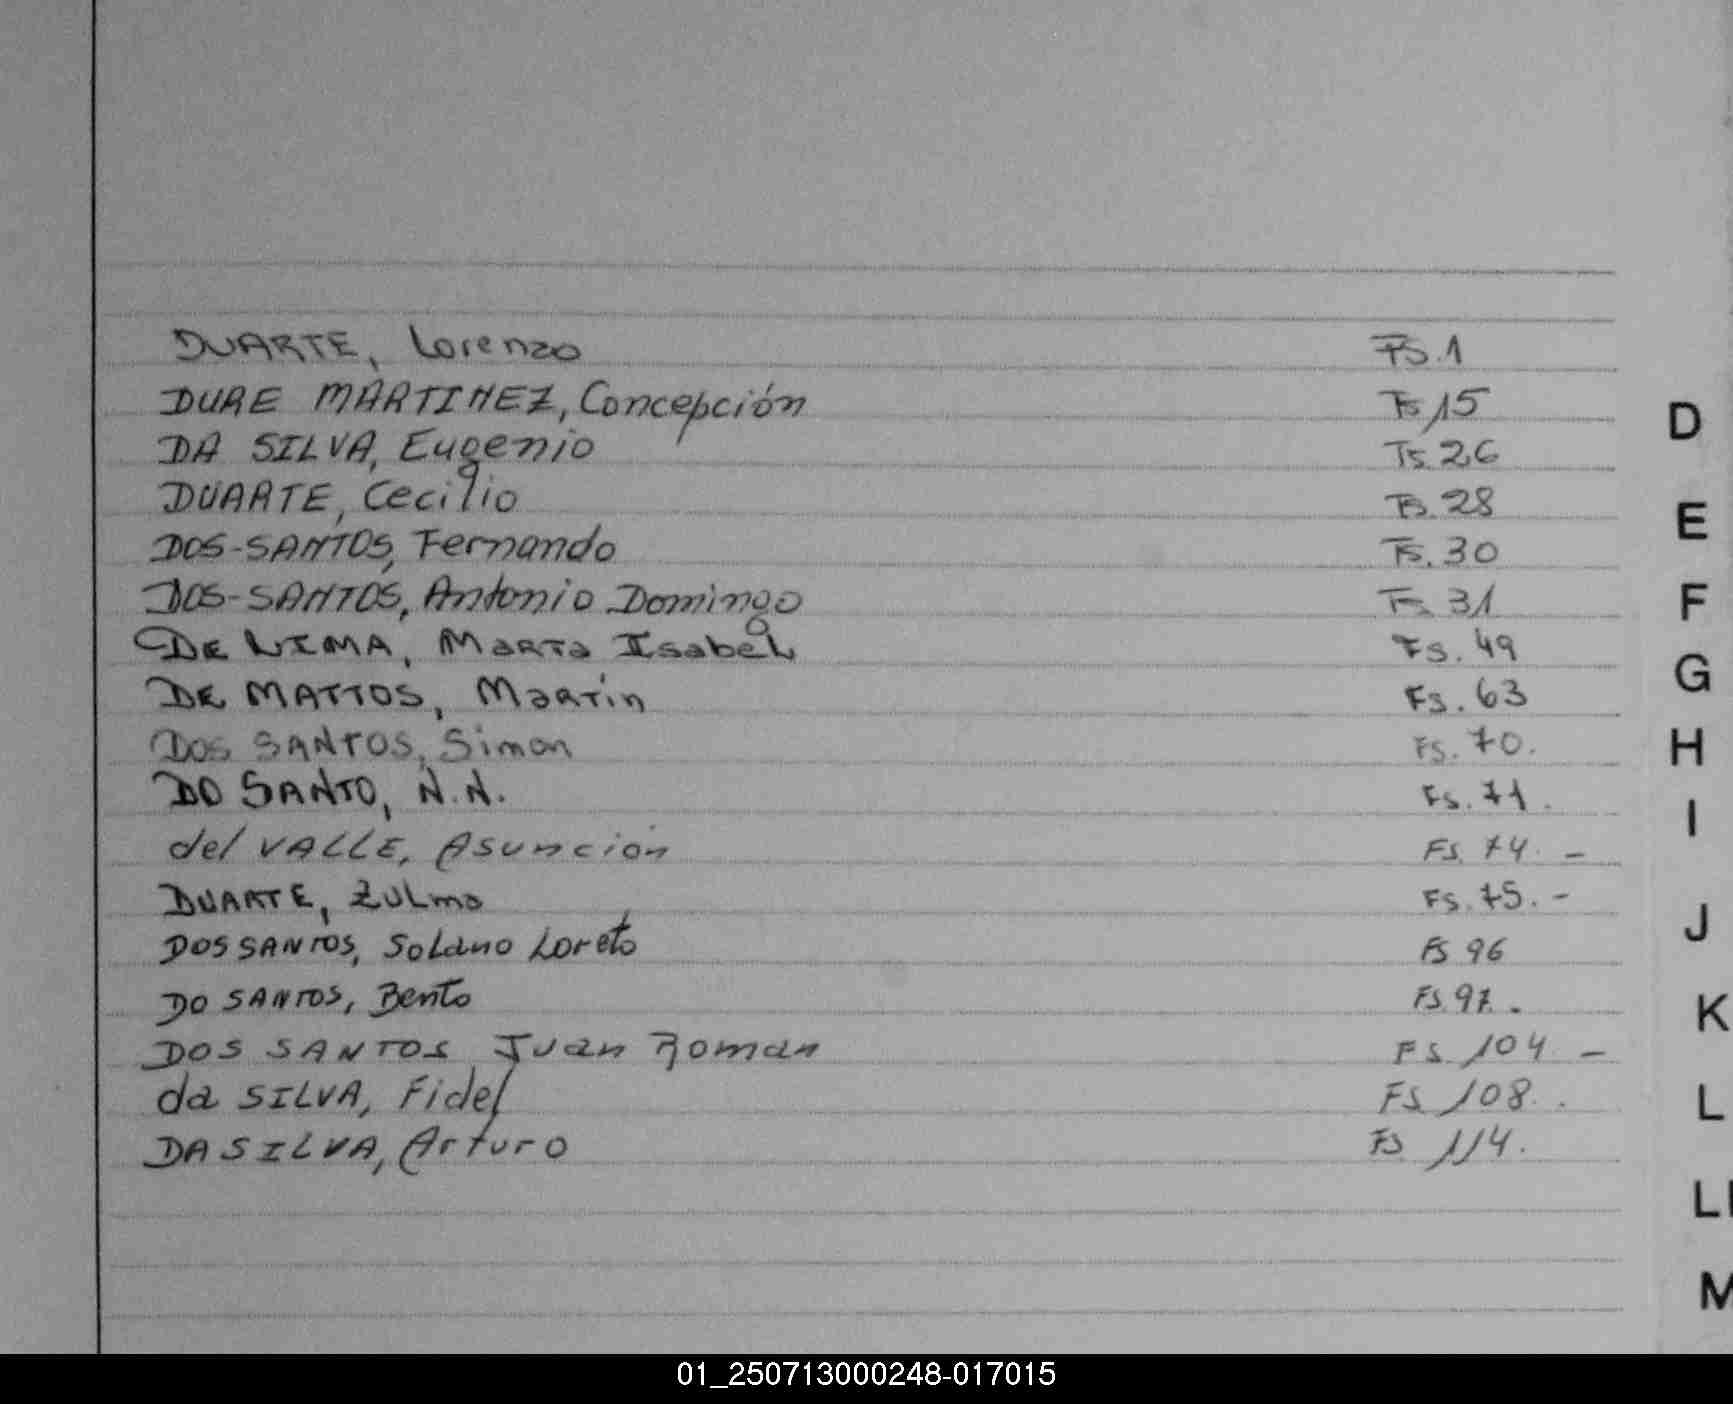 DUARTE, Lorenzo Fs.1
DURE MARTINEZ, Concepción Fs 15
DA SILVA, Eugenio Fs.26
DUARTE, Cecilio Fs.28
DOS-SANTOS, Fernando Fs.30
DOS-SANTOS, Antonio Domingo Fs 31
DE LIMA, Marta Isabel Fs.49
DE MATTOS, Martín Fs.63
DOS SANTOS, Simon Fs.70.
DO SANTO, N.N. Fs.71.
del VALLE, Asunción Fs.74.-
DUARTE, Zulma Fs.75.-
DOS SANTOS, Solano Loreto Fs 96
DO SANTOS, Bento Fs.97.
DOS SANTOS Juan Roman Fs 104 -
da SILVA, Fidel Fs 108.
DA SILVA, Arturo Fs 114.
D
E
F
G
H
I
J
K
L
LL
M
01_250713000248-017015